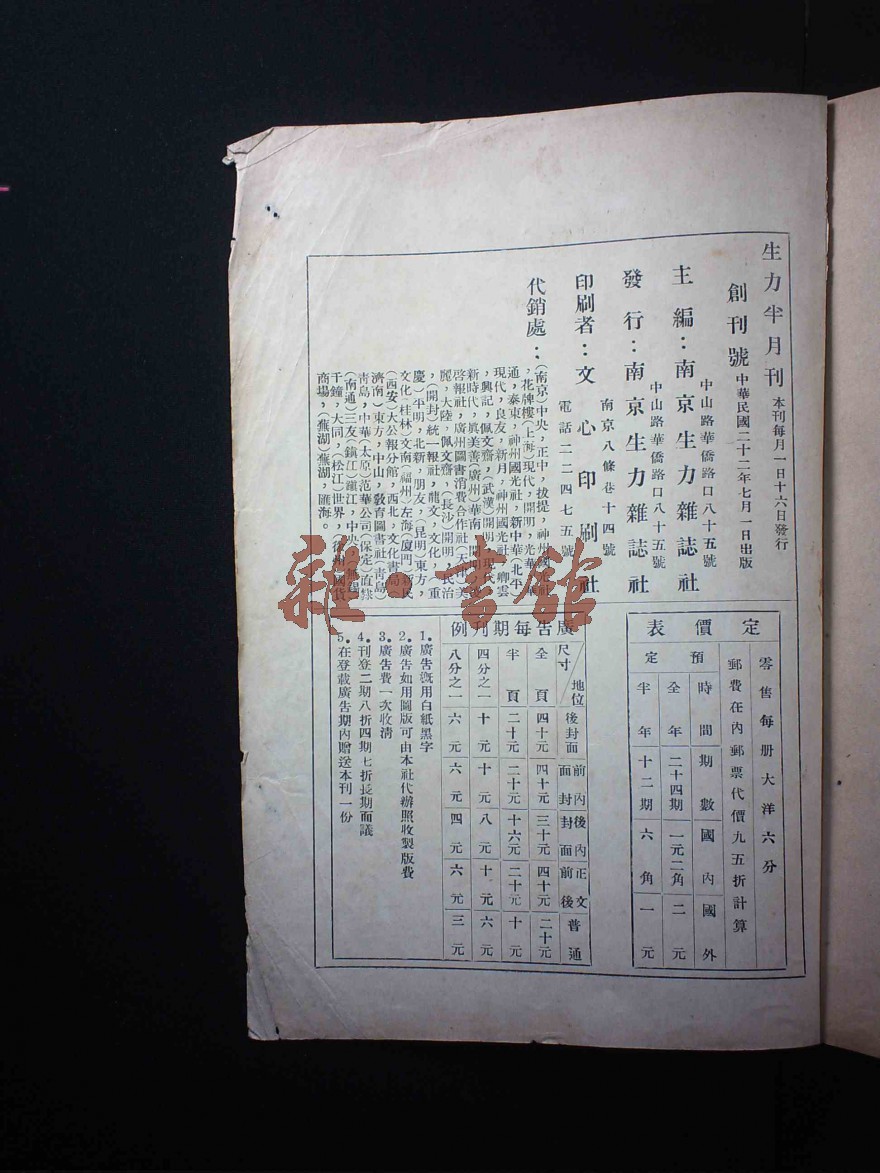 生力半月刊 本刊每月一日十六日發行
創刊號 中華民國二十二年七月一日出版
主編：南京生力雜誌社
中山路華僑路口八十五號
發行：南京生力雜誌社
中山路華僑路口八十五號
印刷者：文心印刷社
南京八條巷十四號
電話二二四七五號
代銷處：(南京)中央，正中，拔提，神州國光社
，花牌樓(上海)現代，開明，光華
通，泰東，神州國光社，新中華(北平
現代，良友，新月，神州國光社，卿雲
，興記，佩文齋，(武漢)開明，現代
新時代，眞美善(廣州)華南，開明
啓報社，廣州圖書消費合作社(天津)美
麗，大陸，佩文齋，(長沙)開明，民治
，(開封)統一報社，龍文，文化，(重
慶)平明，北新，朋友，(昆明)東方，
文化(桂林)文南(福州)左海(廈門)新民
(西安)大公報分館，西北，文化書局(
濟南)東方，中山，敎育圖書社(靑島)
靑島，中華(太原)范華公司(保定)直隸
(南通)三友(鎭江)鎭江，中央，無錫
千鐘，大同，(松江)世界，(徐州)國貨
商場，(蕪湖)蕪湖，匯海。
定價表
零售每册大洋六分
郵費在內郵票代價九五折計算
預定 時間 期數 國內 國外
全年 二十四期 一元二角 二元
半年 十二期 六角 一元
廣告每期刊例
尺寸 地位 後封面 前封面內 後封面內 正文前後 普通
全頁 四十元 四十元 三十元 四十元 二十元
半頁 二十元 二十元 十六元 二十元 十元
四分之一 十元 十元 八元 十元 六元
八分之一 六元 六元 四元 六元 三元
1．廣告概用白紙黑字
2．廣告如用圖版可由本社代辦照收製版費
3．廣告費一次收淸
4．刊登二期八折四期七折長期面議
5．在登載廣告期內贈送本刊一份
雜·書館